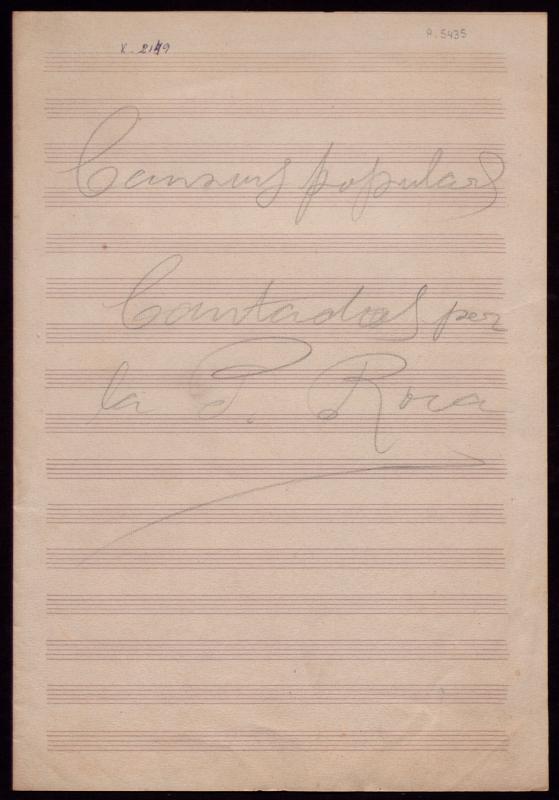 R. 2149
A. 5435
Cansons populars
Cantadas per
la P. Roca